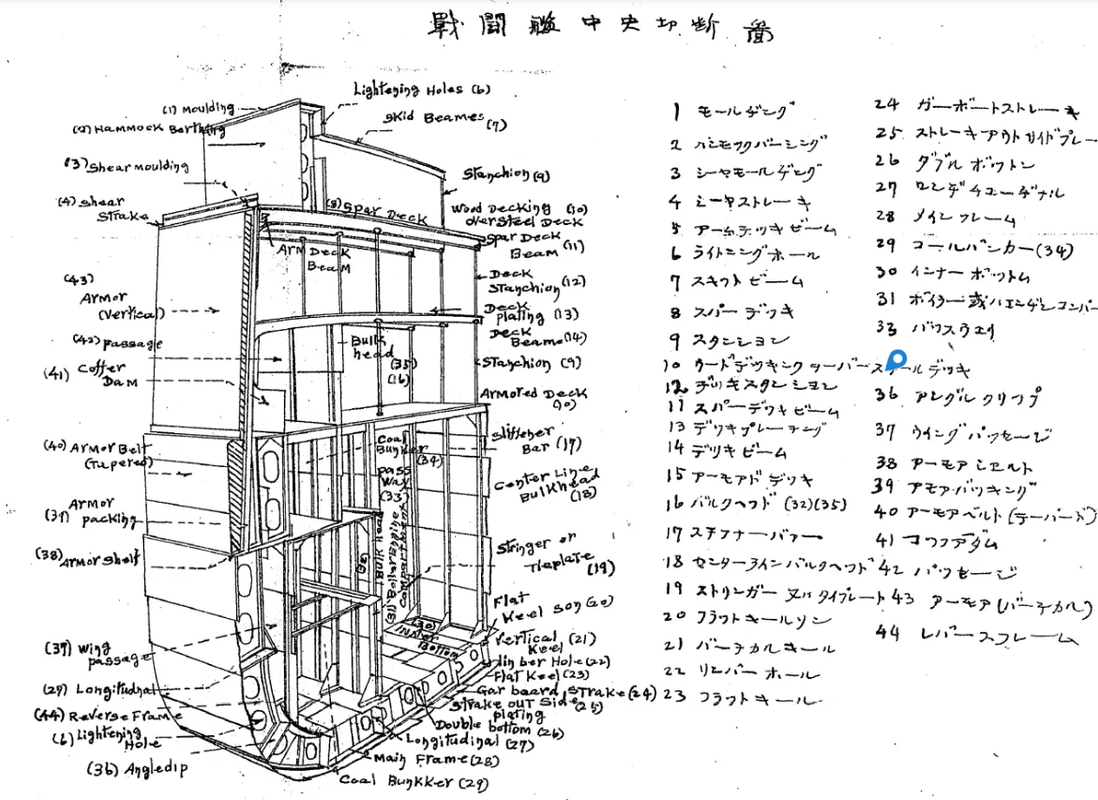 戰闘艦中央切断圖
Lightening Holes (6)
(1) Moulding
(2) Hammock Berthing
skid Beames (7)
(3) Shear moulding
Stanchion (9)
(4) shear
strake
(8) Spar Deck
Wood Decking (10)
over steel Deck
Spar Deck
Beam (11)
Arm Deck
Beam
Deck
Stanchion (12)
(43)
Armor
(Vertical)
Deck
plating (13)
Deck
Beams (14)
(42) passage
Bulk
head
(35)
(16)
Stanchion (9)
(41) Coffer
Dam
Armored Deck
(10)
Stiffener
Bar (17)
(40) Armor Belt
(Tapered)
Coal
Bunker
(34)
pass
way
(33)
Center Line
Bulkhead
(18)
Armor
packing
(38) Armor shelf
Bulk head
(31) Boiler or Engine
Compartment
Stringer or
Tieplate (19)
Flat
Keel son (20)
(30)
Inner
Bottom
Vertical
Keel (21)
(37) Wing
passage
Limber Hole (22)
Flat Keel (23)
(29) Longitudinal
Gar board strake (24)
Strake out Side
plating (25)
(44) Reverse Frame
Double bottom (26)
(6) Lightening
Hole
Longitudinal (27)
Main Frame (28)
(36) Angledip
Coal Bunkker (29)
1 モールヂング
2 ハンモックバーシング
3 シーヤモールヂング
4 シーヤストレーキ
5 アームデッキビーム
6 ライトニングホール
7 スキットビーム
8 スパーデッキ
9 スタンション
10 ウードデッキングオーバースチールデッキ
12 デッキスタンション
11 スパーデッキビーム
13 デッキプレーチング
14 デッキビーム
15 アーモアドデッキ
16 バルクヘッド (32)(35)
17 スチフナーバァー
18 センターラインバルクヘッド
19 ストリンガー又ハタイプレート
20 フラットキールソン
21 バーチカルキール
22 リンバーホール
23 フラットキール
24 ガーボートストレーキ
25 ストレーキアウトサイドプレー
26 ダブルボットン
27 ロンヂチユーヂナル
28 メインフレーム
29 コールバンカー (34)
30 インナーボットム
31 ボイラー或ハエンヂンコンパー
33 パッスウエイ
36 アングルクリップ
37 ウイングパッセージ
38 アーモアシェルト
39 アモアパッキング
40 アーモアベルト (テーパード)
41 コッファダム
42 パッセージ
43 アーモア (バーチカル)
44 レバースフレーム